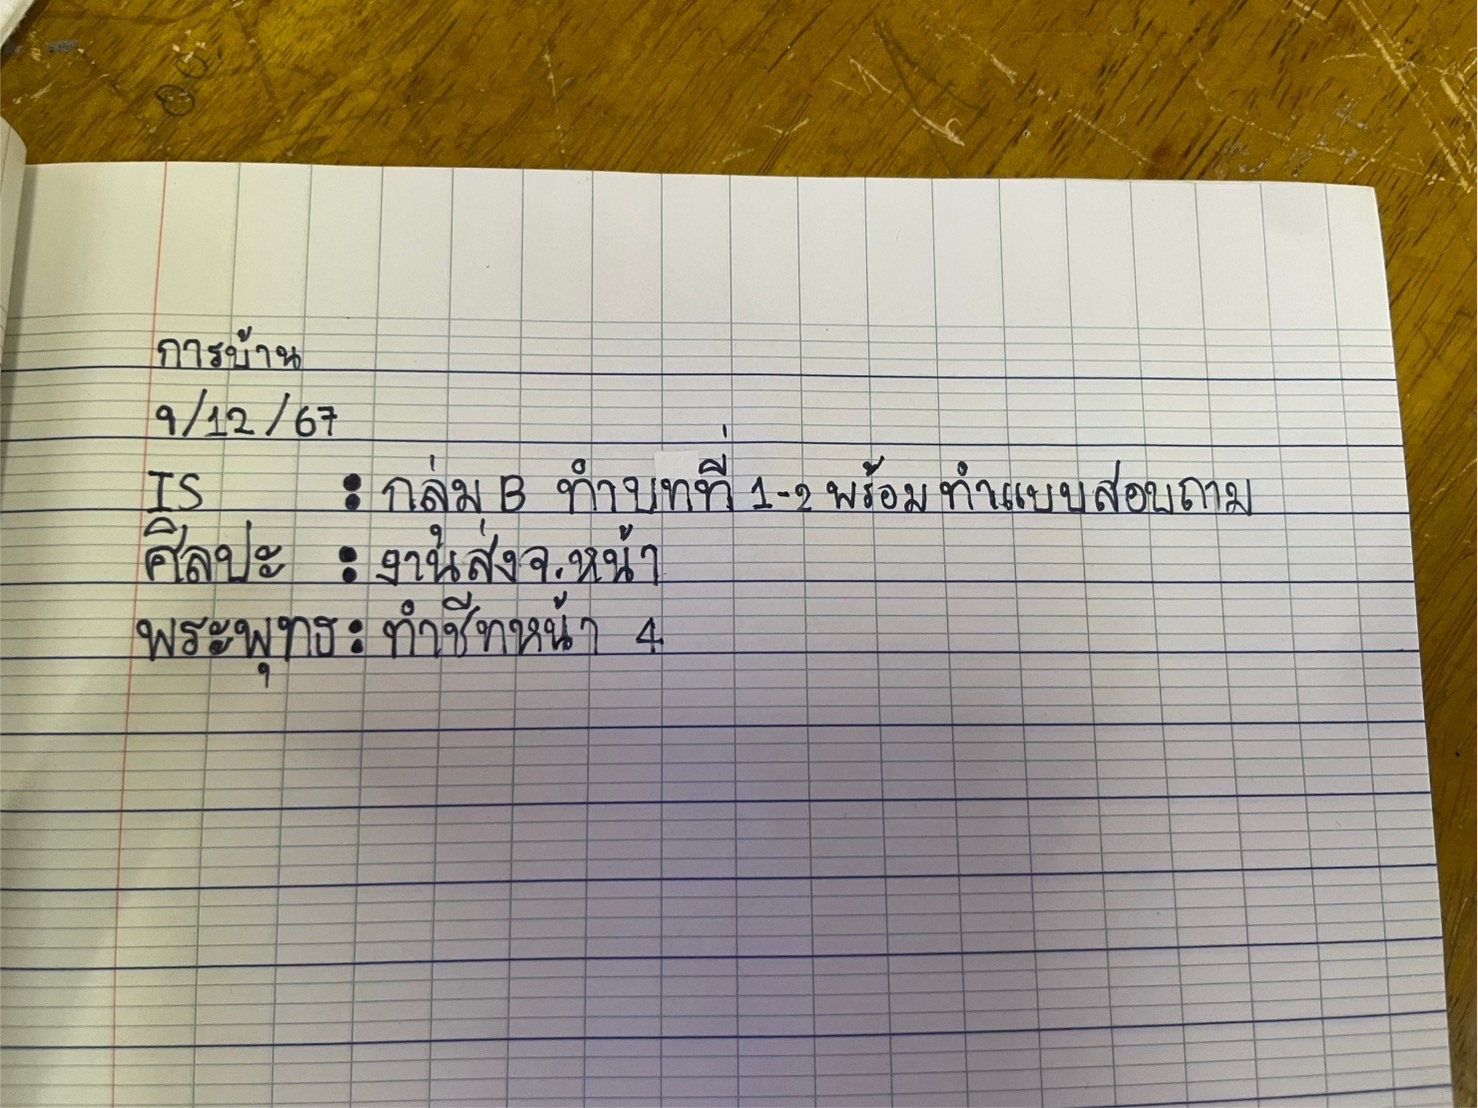 การบ้าน
9/12/67
IS : กล่ม B ทำบทที่ 1-2 พร้อมทำแบบสอบถาม
ศิลปะ : งานส่งจ.หน้า
พระพุทธ : ทำชีทหน้า 4